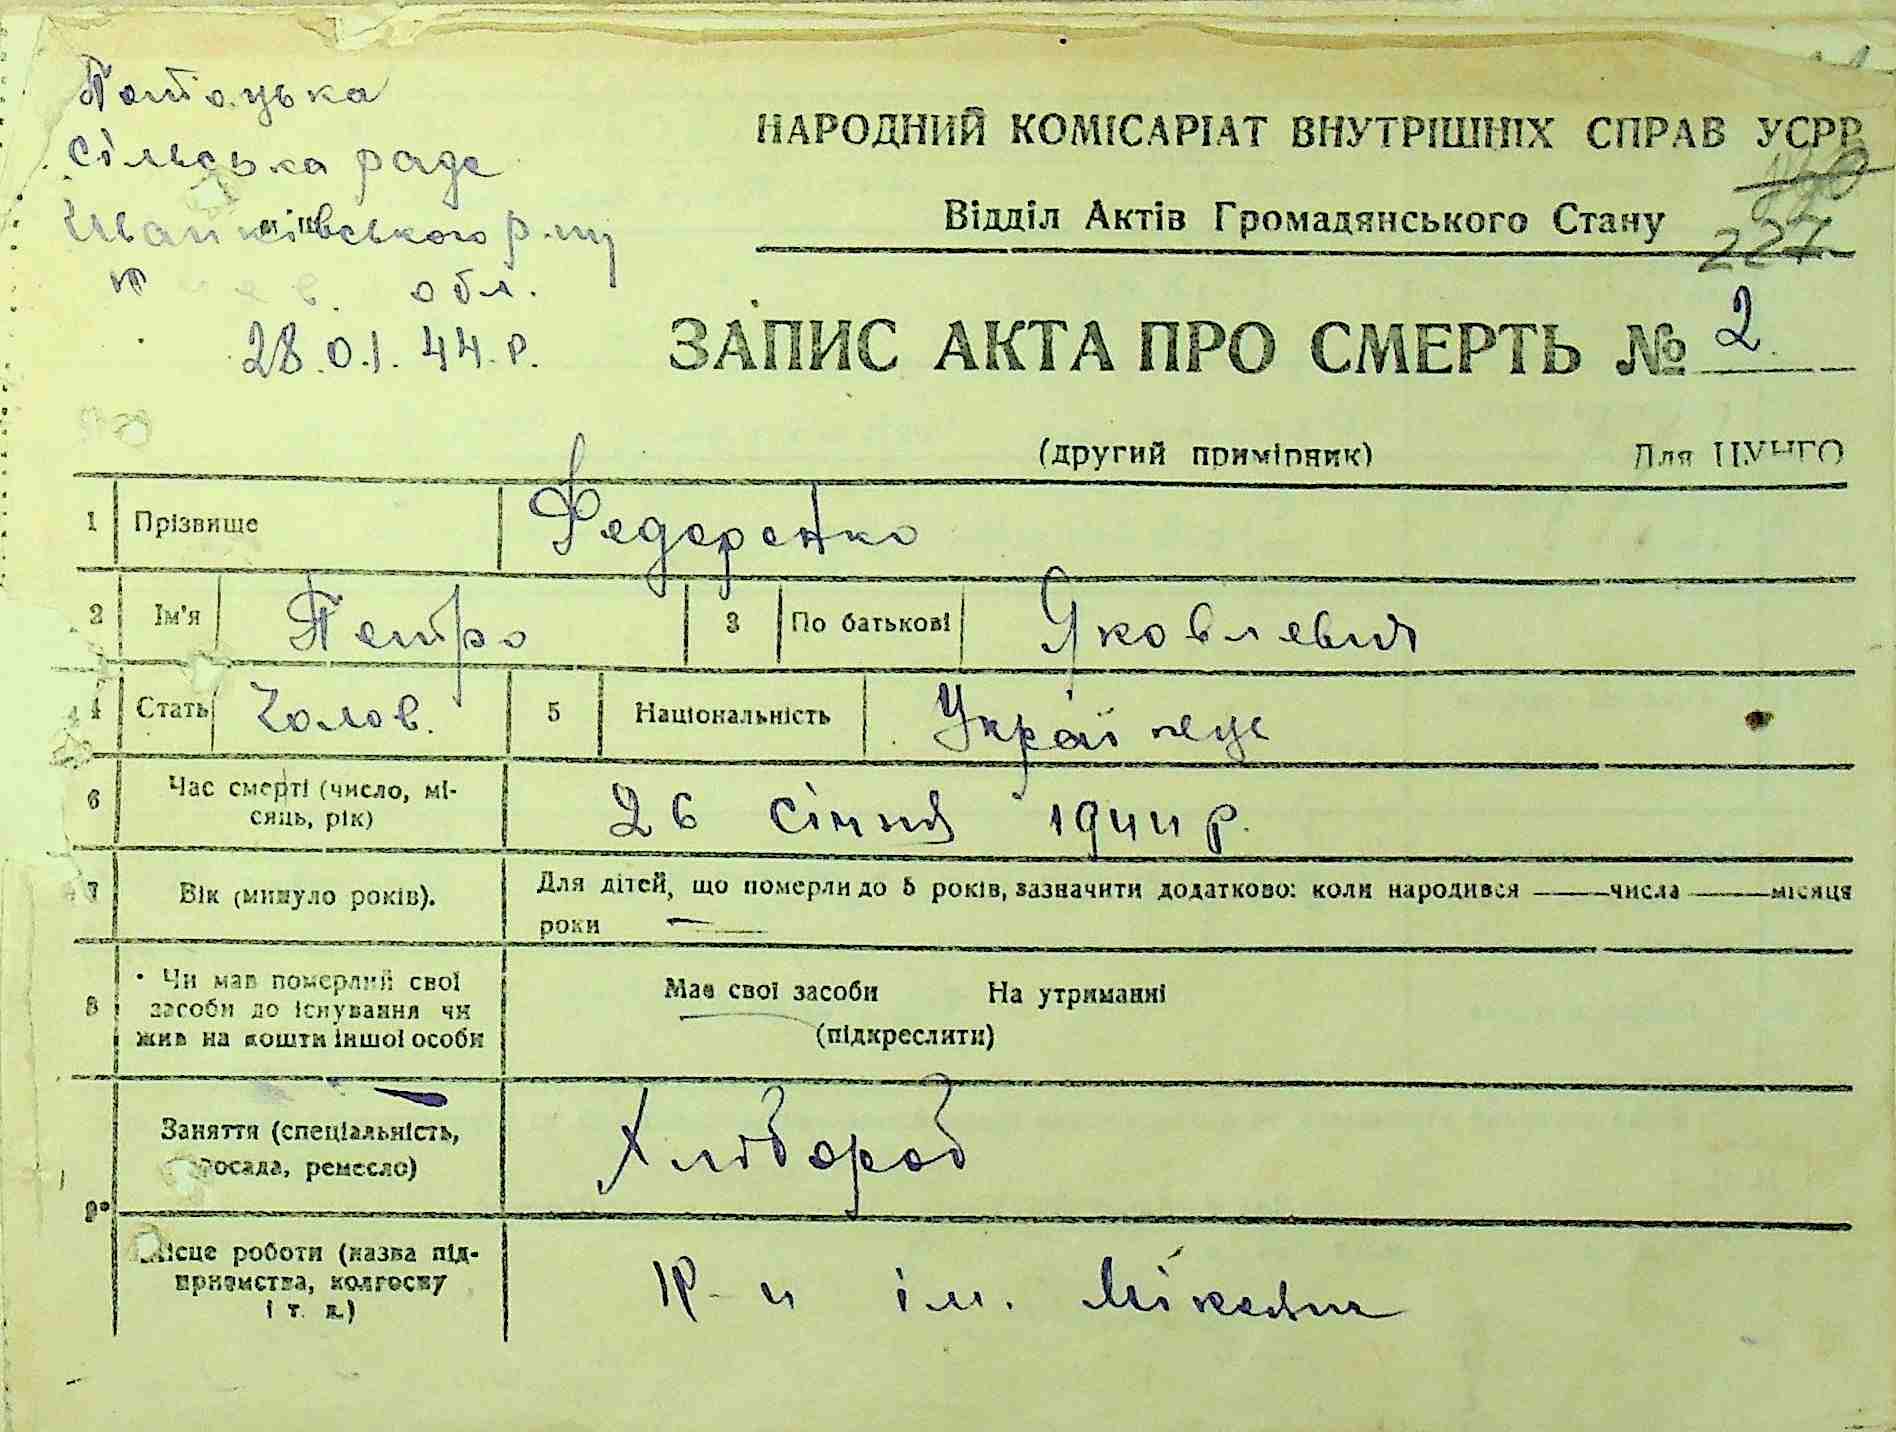 сільська рада
Іванківського р-ну
обл.
28.01.44 р.
НАРОДНИЙ КОМІСАРІАТ ВНУТРІШНІХ СПРАВ УСРР
Відділ Актів Громадянського Стану
227
ЗАПИС АКТА ПРО СМЕРТЬ № 2
(другий примірник) Для ЦУНГО
1 Прізвище Федоренко
2 Ім'я Петро 3 По батькові Яковлевич
4 Стать Чолов. 5 Національність Українець
6 Час смерті (число, мі-
сяць, рік) 26 січня 1944 р.
7 Вік (минуло років). Для дітей, що померли до 5 років, зазначити додатково: коли народився — числа — місяця
роки —
8 Чи мав померлий свої
засоби до існування чи
жив на кошти іншої особи
Має свої засоби На утриманні
(підкреслити)
9 Заняття (спеціальність,
посада, ремесло) Хлібороб
Місце роботи (назва під-
приємства, колгоспу
і т. д.) К-п ім. Мікояна